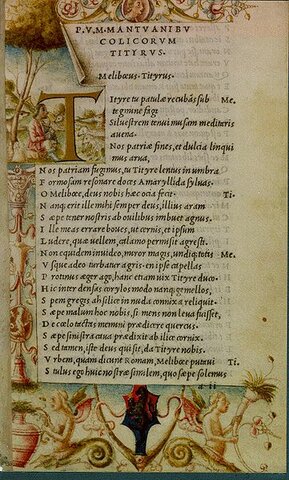 P. V. M. MANTVANI BV
COLICORVM
TITYRVS.
Melibœus. Tityrus.
Tityre tu patulæ recubans sub Me.
tegmine fagi
Siluestrem tenui musam meditaris
auena.
Nos patriæ fines, et dulcia linqui
mus arua,
Nos patriam fugimus, tu Tityre lentus in umbra
Formosam resonare doces Amaryllida syluas.
O Melibœe, deus nobis hæc ocia fecit. Ti.
Nanq; erit ille mihi semper deus, illius aram
Sæpe tener nostris ab ouilibus imbuet agnus.
Ille meas errare boues, ut cernis, et ipsum
Ludere, quæ uellem, calamo permisit agresti.
Non equidem inuideo, miror magis, undiq; totis Me.
Vsque adeo turbatur agris. en ipse capellas
Protinus æger ago, hanc etiam uix Tityre duco.
Hic inter densas corylos modo nanq; gemellos,
Spem gregis ah silice in nuda connixa reliquit.
Sæpe malum hoc nobis, si mens non leua fuisset,
De cœlo tactas memini prædicere quercus.
Sæpe sinistra caua prædixit ab ilice cornix.
Sed tamen, iste deus qui sit, da Tityre nobis.
Vrbem, quam dicunt Romam, Melibœe putaui Ti.
Stultus ego huic nostræ similem, quo sæpe solemus
a ii